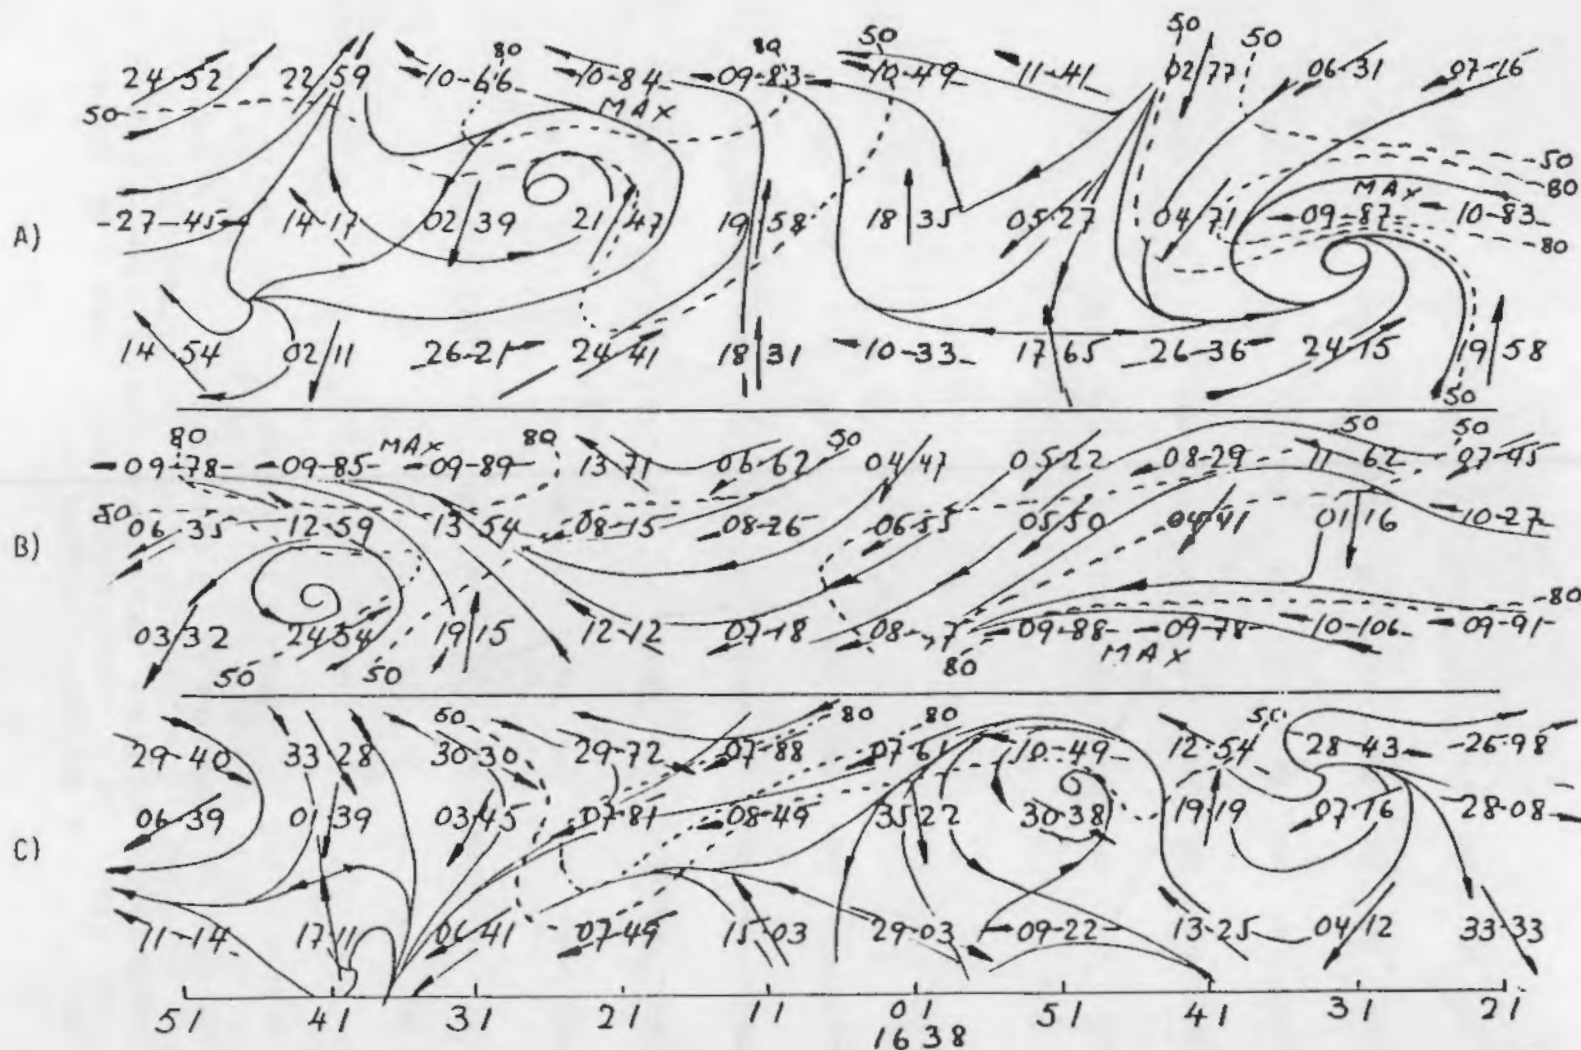 50 50
80 80 50
24-52 22/59 10-66 10-84 09-83 10-49 11-41 02/77 06-31 07-16
50 MAX 50
80
MAX
A) 27-45 14-17 02/39 21/47 19-58 18/35 05-27 04/71 09-87 10-83
80
14 54 02/11 26-21 24-41 18/31 10-33 17/65 26-36 24-15 19/58
50
80 MAX 80 50 50 50
09-78 09-85 09-89 13-71 06-62 04/47 05/22 08-29 11-62 07-45
50
B) 06-35 12-59 13-54 08-15 08-26 06-55 05/50 04/41 01/16 10-27
80
03/32 24-54 19/15 12-12 07-18 09-88 09-78 10-106 09-91
50 50 80 MAX
80 80 50
29-40 33-28 30-30 29-72 07-88 07-61 10-49 12-54 28-43 26-98
C) 06-39 01-39 03/45 07-81 08-49 35-22 30-38 19/19 07-16 28-08
11-14 17-11 06-41 07-49 15-03 29-03 09-22 13-25 04/12 33-33
51 41 31 21 11 01 51 41 31 21
1638